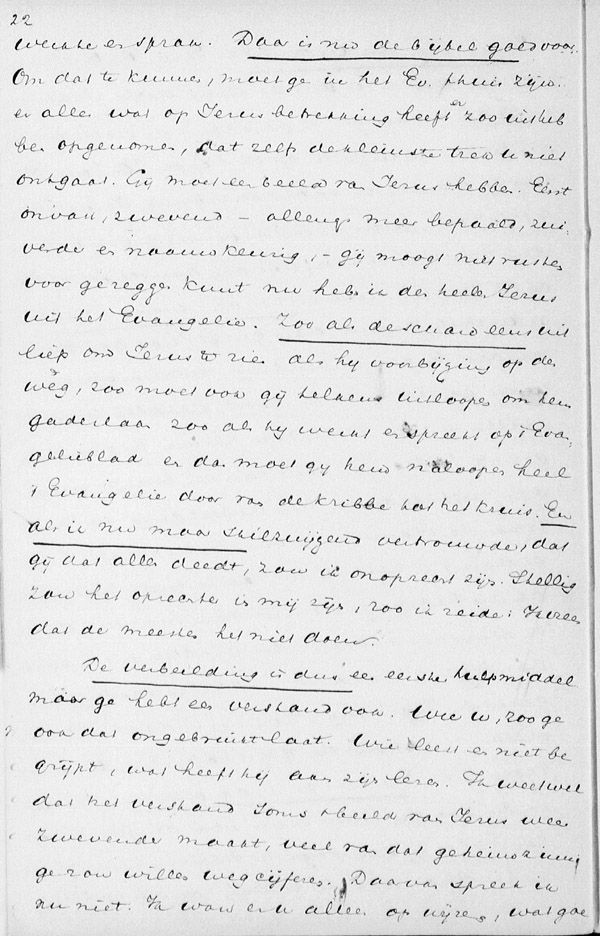 22
werkte en sprak. Daar is nu de bijbel goed voor.
Om dat te kunnen, moet ge in het Ev. thuis zijn.
en alles wat op Jezus betrekking heeft er zoo uit heb
ben opgenomen, dat zelf de kleinste trek u niet
ontgaat. Gij moet een beeld van Jezus hebben. Eerst
onvast, zwevend – allengs meer bepaald, zui-
verder en naauwkeurig, – gij moogt niet rusten
voor ge zeggen kunt nu heb ik den heelen Jezus
uit het Evangelie. Zoo als de schare eens uit
liep om Jezus te zien als hij voorbijging op den
weg, zoo moet ook gij telkens uitloopen om hem
gadeslaan zoo als hij werkt en spreekt op 't Evan-
gelieblad en dan moet gij hem naloopen heel
't Evangelie door van de kribbe tot het kruis. En
als ik nu maar stilzwijgend vertrouwde, dat
gij dat alles deedt, zou ik onoprecht zijn. Stellig
zou het oprechter in mij zijn, zoo ik zeide: Ik vrees
dat de meesten het niet doen.
De verbeelding is dus een eerste hulpmiddel
maar ge hebt een verstand ook. Wee u, zoo ge
ook dat ongebruikt laat. Wie leest en niet be
grijpt, wat heeft hij aan zijn lezen. Ik weet wel
dat het verstand soms 't beeld van Jezus weer
zwevende maakt, veel van dat geheimzinnig
ge zou willen wegcijferen. Daarvan spreek ik
nu niet. Ik wou er u alleen op wijzen, wat goe